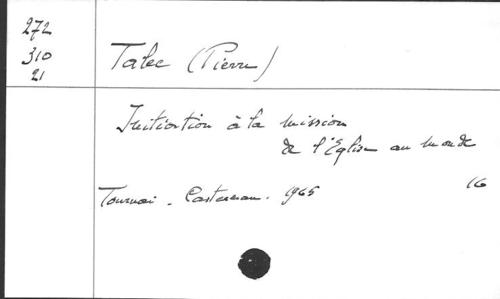 272
310
21
Talec (Pierre)
Initiation à la mission
de l'Eglise au monde
Tournai. Casterman. 1965 16